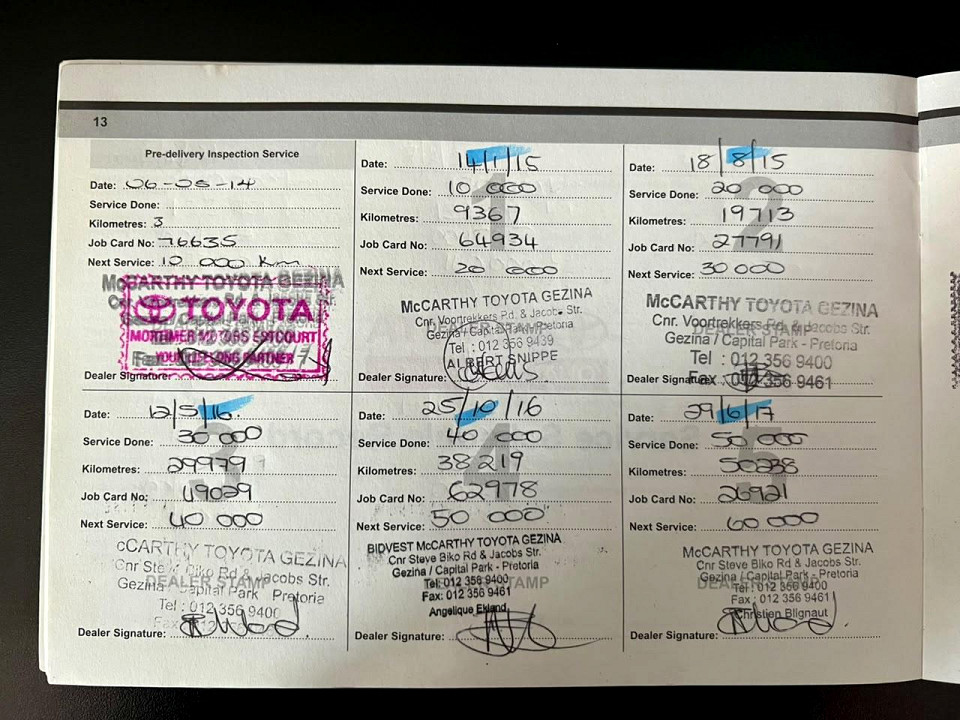 13
Pre-delivery Inspection Service
Date: 06-05-14
Service Done:
Kilometres: 3
Job Card No: 76635
Next Service: 10 000 km
McCARTHY TOYOTA GEZINA
TOYOTA
MORTIMER MOTORS ESTCOURT
YOUR LIFELONG PARTNER
Dealer Signature:
Date: 14/1/15
Service Done: 10 000
Kilometres: 9367
Job Card No: 64934
Next Service: 20 000
1
McCARTHY TOYOTA GEZINA
DEALER STAMP
Cnr. Voortrekkers Rd. & Jacobs Str.
Gezina / Capital Park - Pretoria
Tel : 012 356 9439
ALBERT SNIPPE
Dealer Signature:
Date: 18/8/15
Service Done: 20 000
Kilometres: 19713
Job Card No: 27791
Next Service: 30 000
2
McCARTHY TOYOTA GEZINA
DEALER STAMP
Cnr. Voortrekkers Rd. & Jacobs Str.
Gezina / Capital Park - Pretoria
Tel : 012 356 9400
Fax : 012 356 9461
Dealer Signature:
Date: 12/5/16
Service Done: 30 000
Kilometres: 29979
Job Card No: 49029
Next Service: 40 000
3
cCARTHY TOYOTA GEZINA
Cnr Steve Biko Rd & Jacobs Str.
DEALER STAMP
Gezina / Capital Park Pretoria
Tel : 012 356 9400
Dealer Signature:
Date: 25/10/16
Service Done: 40 000
Kilometres: 38219
Job Card No: 62978
Next Service: 50 000
4
BIDVEST McCARTHY TOYOTA GEZINA
Cnr Steve Biko Rd & Jacobs Str.
Gezina / Capital Park - Pretoria
DEALER STAMP
Tel: 012 356 9400
Fax: 012 356 9461
Angelique Ekland
Dealer Signature:
Date: 29/6/17
Service Done: 50 000
Kilometres: 50238
Job Card No: 26921
Next Service: 60 000
5
McCARTHY TOYOTA GEZINA
Cnr Steve Biko Rd & Jacobs Str.
Gezina / Capital Park - Pretoria
DEALER STAMP
Tel : 012 356 9400
Fax : 012 356 9461
Christien Blignaut
Dealer Signature: